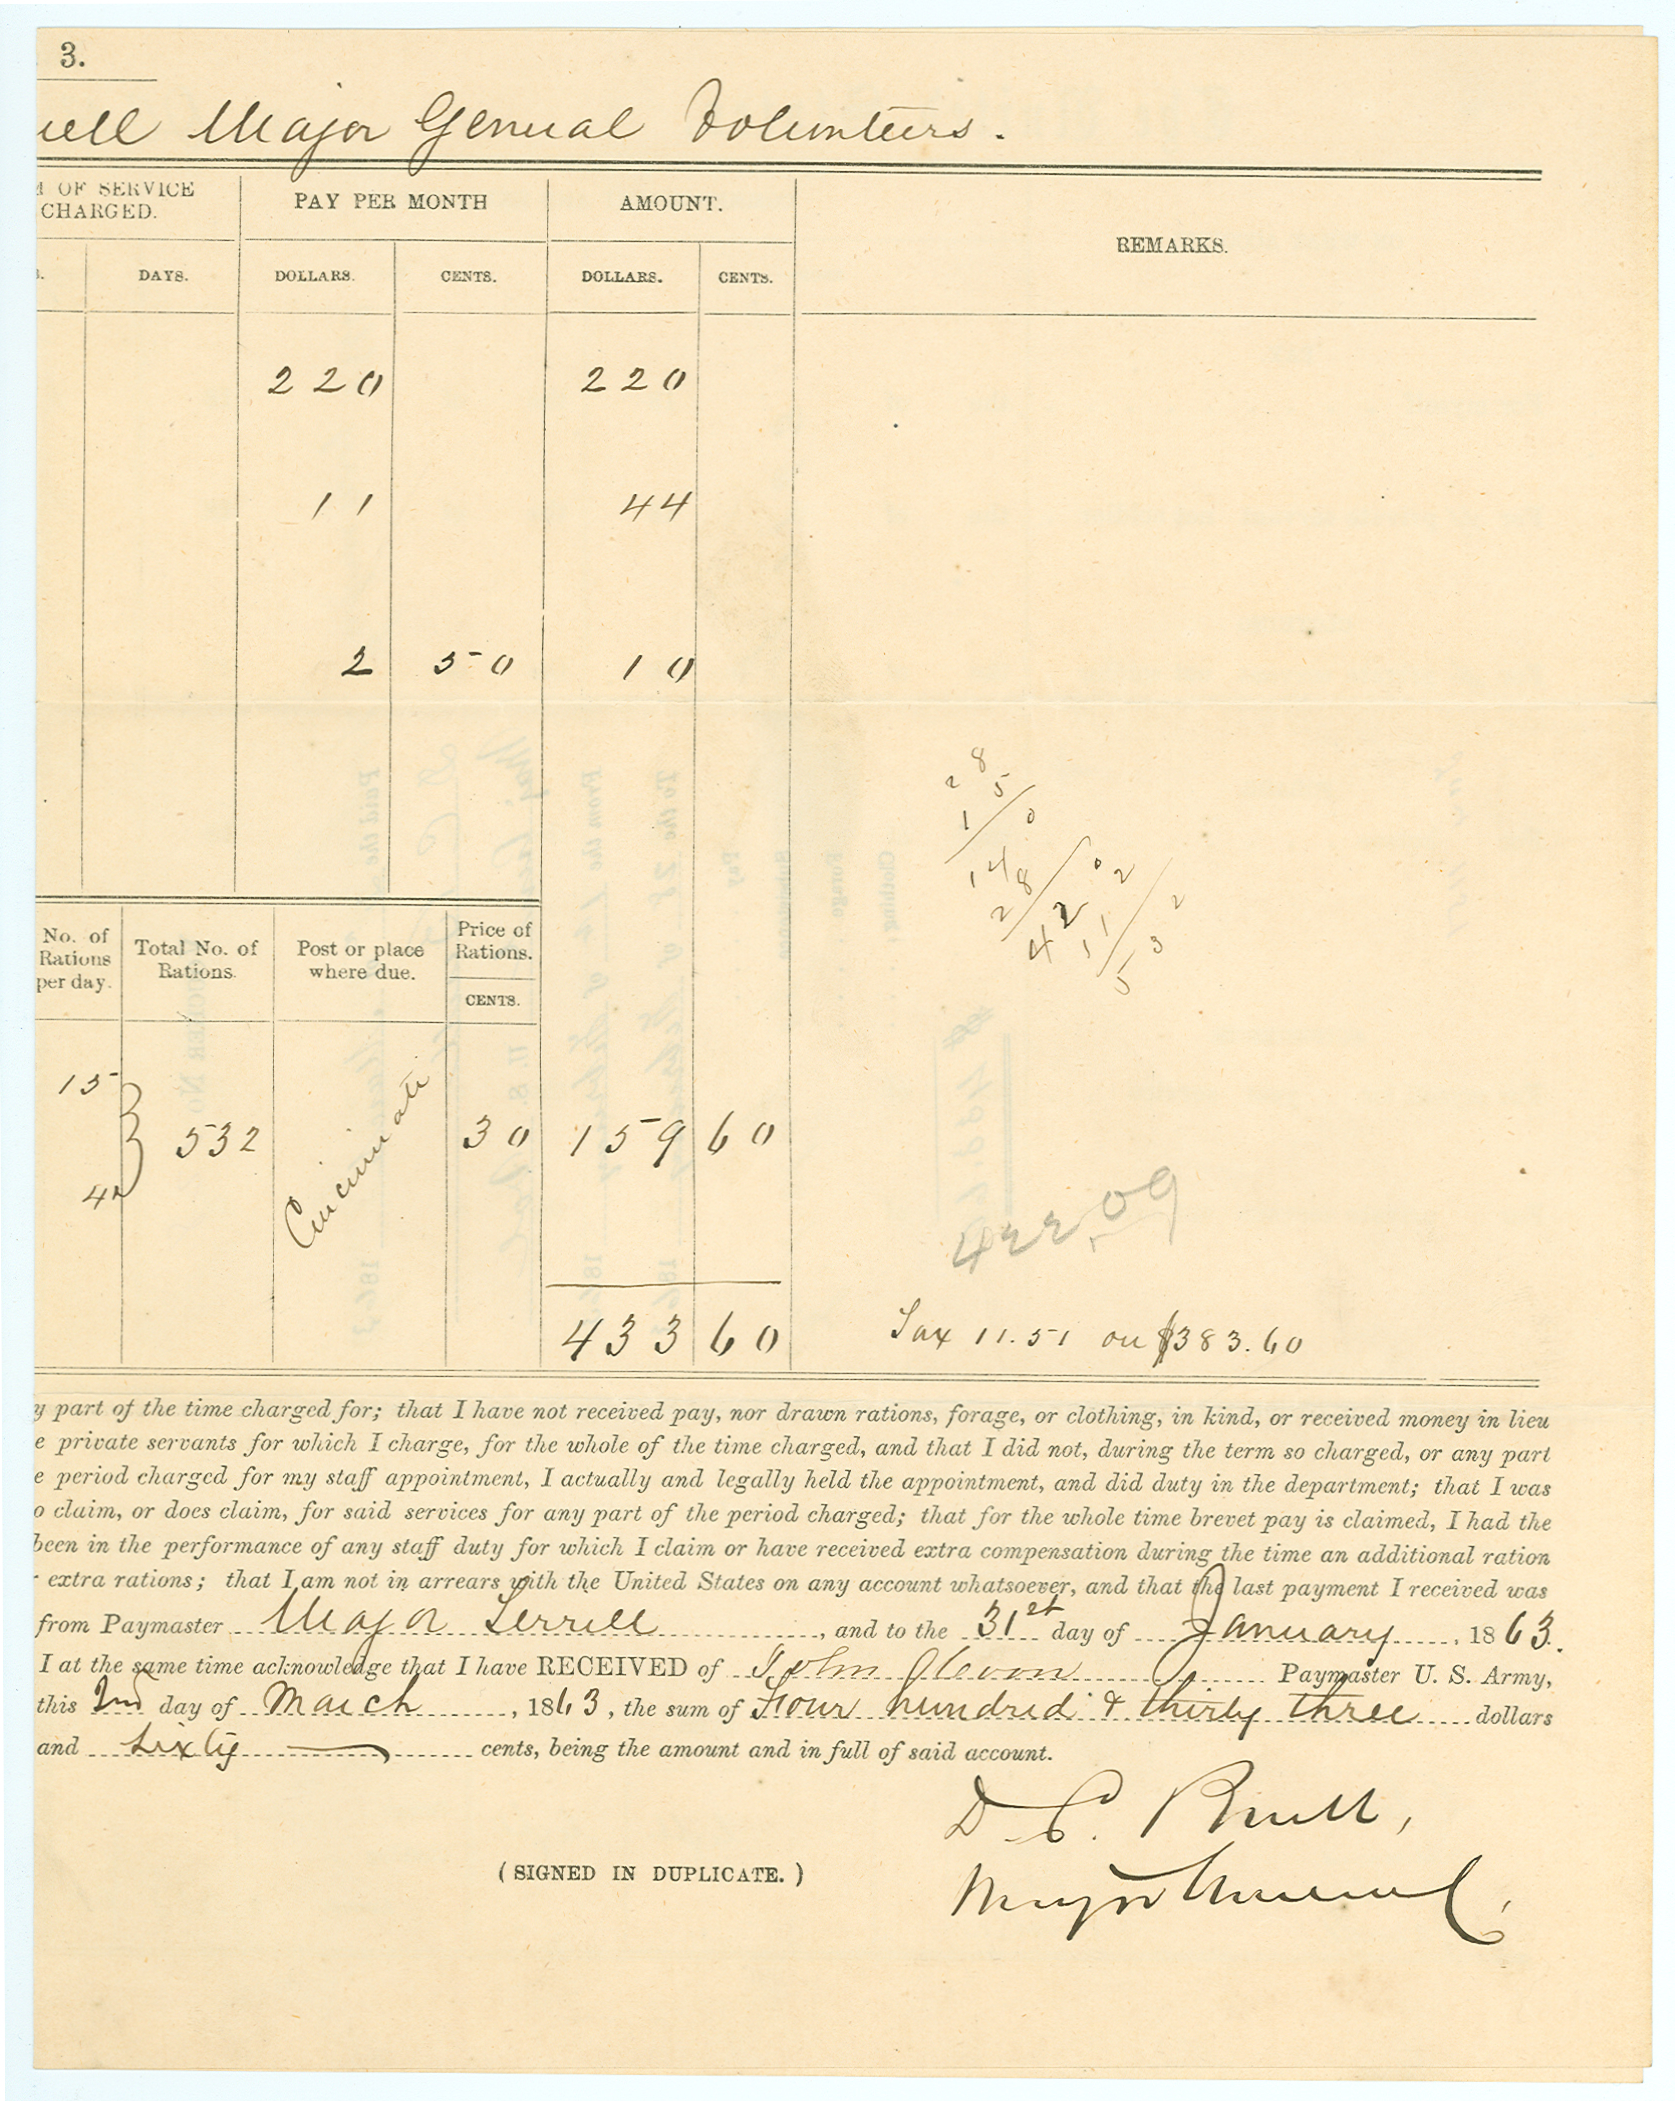 3.
uell Major General Volunteers.
OF SERVICE CHARGED.
PAY PER MONTH
AMOUNT.
REMARKS.
DAYS.
DOLLARS.
CENTS.
DOLLARS.
CENTS.
220 220
11 44
2 50 10
28
5
1 0
14 0
28 2
42 2
11 3
5
No. of Rations per day.
Total No. of Rations.
Post or place where due.
Price of Rations.
CENTS.
15
4
532 Cincinnati 30 159 60
422.09
433 60
Tax 11.51 on $383.60
y part of the time charged for; that I have not received pay, nor drawn rations, forage, or clothing, in kind, or received money in lieu
e private servants for which I charge, for the whole of the time charged, and that I did not, during the term so charged, or any part
e period charged for my staff appointment, I actually and legally held the appointment, and did duty in the department; that I was
o claim, or does claim, for said services for any part of the period charged; that for the whole time brevet pay is claimed, I had the
been in the performance of any staff duty for which I claim or have received extra compensation during the time an additional ration
extra rations; that I am not in arrears with the United States on any account whatsoever, and that the last payment I received was
from Paymaster Major Terrell, and to the 31st day of January, 1863.
I at the same time acknowledge that I have RECEIVED of John Paymaster U. S. Army,
this 2nd day of March, 1863, the sum of Four hundred & thirty three dollars
and sixty cents, being the amount and in full of said account.
D. C. Buell,
(SIGNED IN DUPLICATE.)
Major General